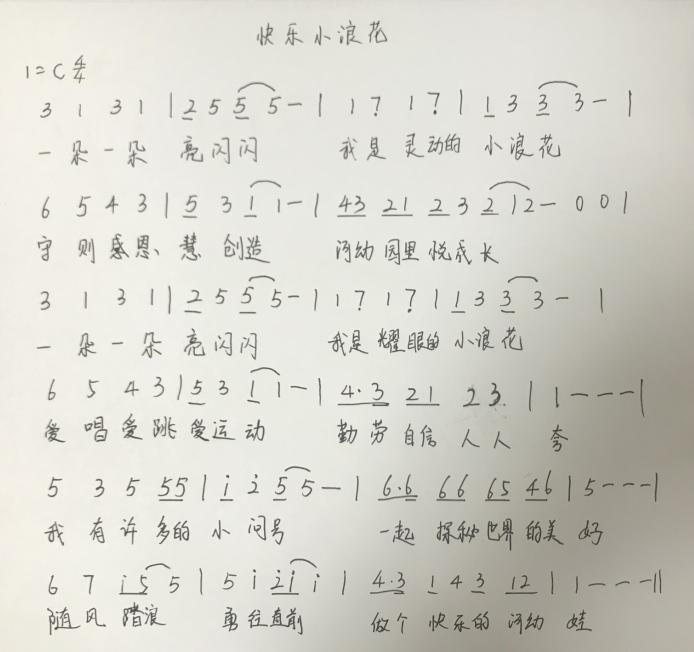 快乐小浪花
1=C 4/4
3 1 3 1 | 2 5 5 5 - | 1 7 1 7 | 1 3 3 3 - |
一朵一朵 亮闪闪 我是灵动的 小浪花
6 5 4 3 | 5 3 1 1 - | 43 21 2 3 2 12 - 0 0 |
守则感恩、慧创造 河幼园里悦成长
3 1 3 1 | 2 5 5 5 - | 1 7 1 7 | 1 3 3 3 - |
一朵一朵亮闪闪 我是耀眼的小浪花
6 5 4 3 | 5 3 1 1 - | 4·3 21 23 | 1 - - - |
爱唱爱跳爱运动 勤劳自信人人夸
5 3 5 55 | i 2 5 5 - | 6·6 66 65 46 | 5 - - - |
我有许多的小问号 一起探秘世界的美好
6 7 i5 5 | 5 i 2i i | 4·3 1 4 3 12 | 1 - - - ||
随风踏浪 勇往直前 做个快乐的河幼娃